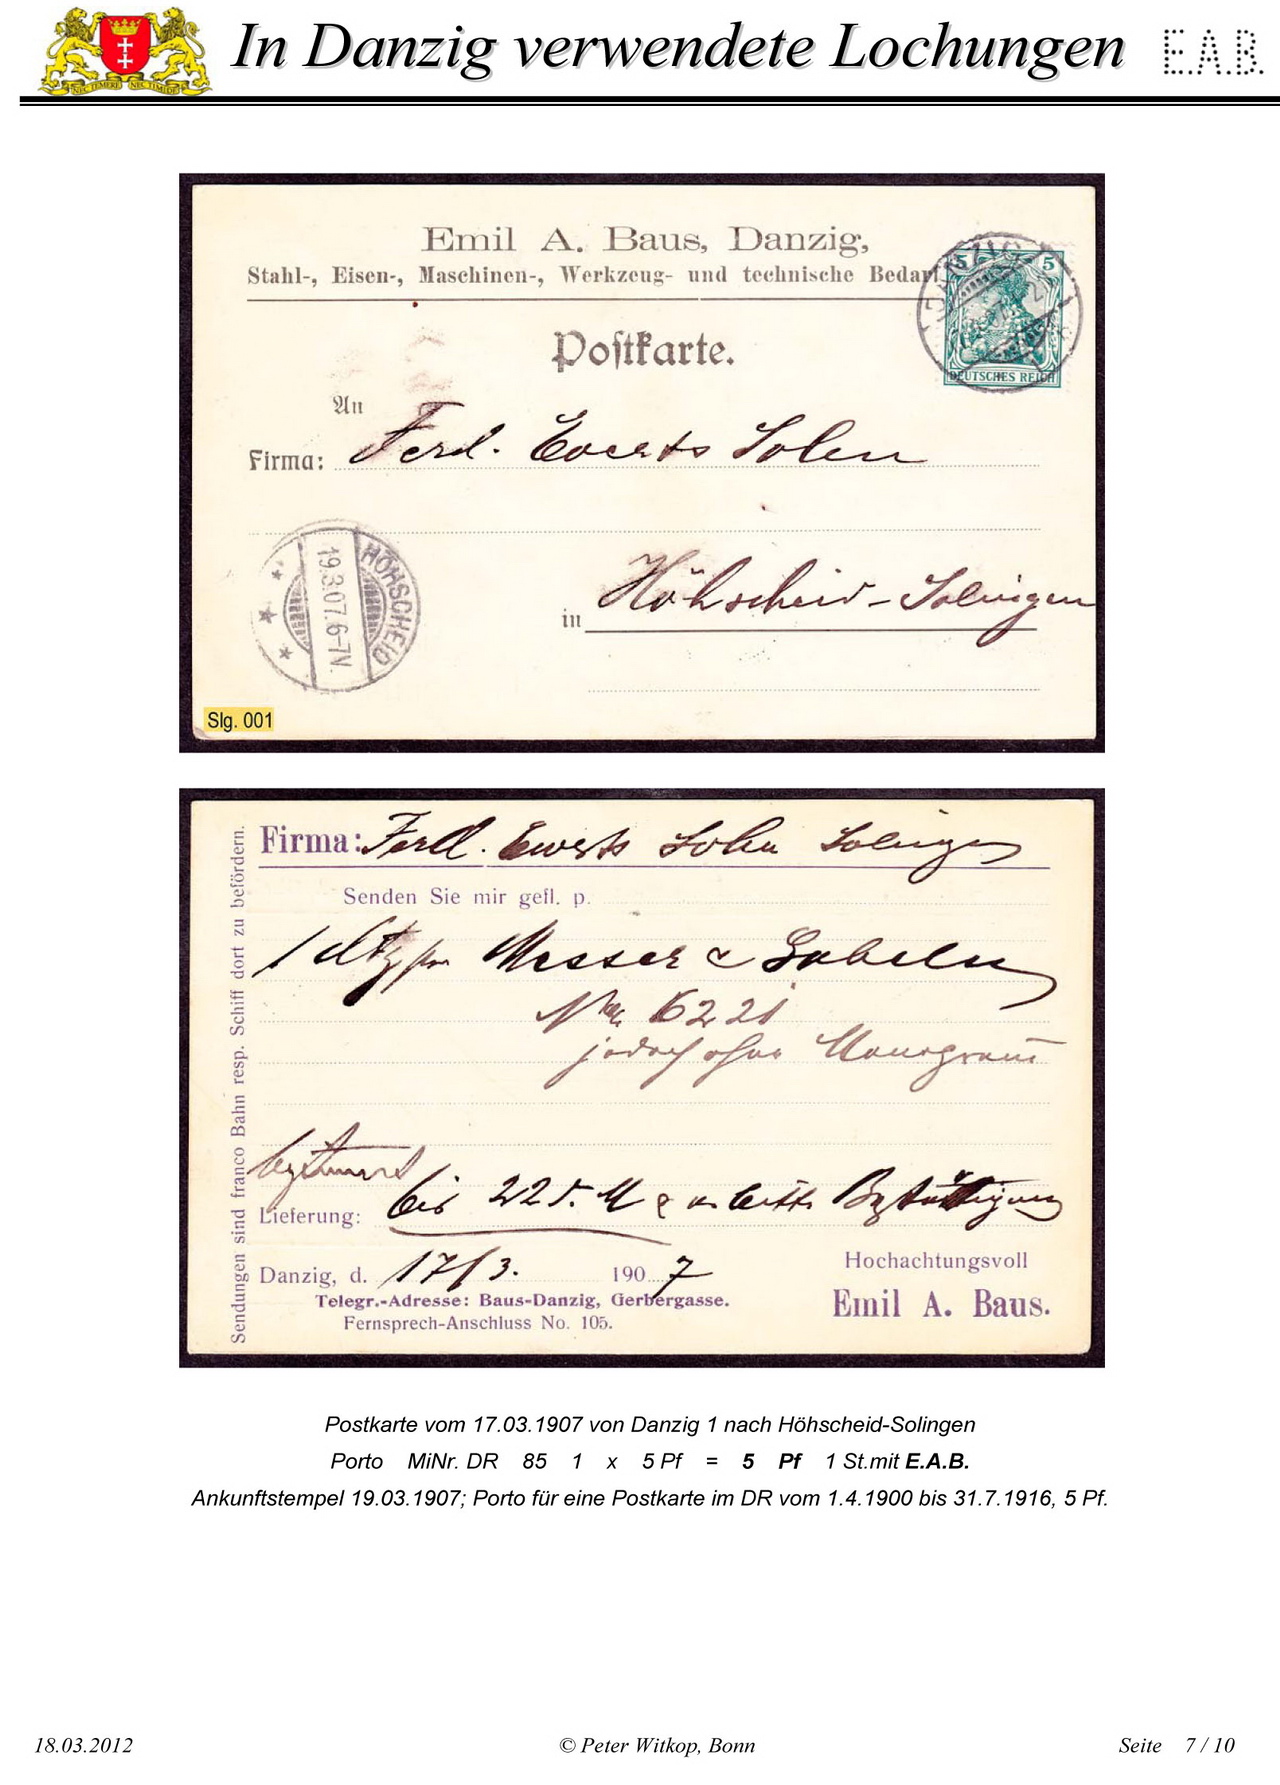 In Danzig verwendete Lochungen E.A.B.
NEC TEMERE NEC TIMIDE
Emil A. Baus, Danzig,
Stahl-, Eisen-, Maschinen-, Werkzeug- und technische Bedarf
5 5
DEUTSCHES REICH
DANZIG 1
Postkarte.
An
Firma: Ferd. Everts Sohn
HÖHSCHEID
19.3.07.6-7N.
in Höhscheid-Solingen
Slg. 001
Sendungen sind franco Bahn resp. Schiff dort zu befördern.
Firma: Ferd. Ewerts Sohn Solingen
Senden Sie mir gefl. p.
1 Messer & Gabeln
6221
jedoch ohne Monogram
bestimmt
Lieferung: bis 225. M & bitte Bestätigung
Danzig, d. 17/3. 1907
Hochachtungsvoll
Telegr.-Adresse: Baus-Danzig, Gerbergasse.
Emil A. Baus.
Fernsprech-Anschluss No. 105.
Postkarte vom 17.03.1907 von Danzig 1 nach Höhscheid-Solingen
Porto MiNr. DR 85 1 x 5 Pf = 5 Pf 1 St.mit E.A.B.
Ankunftstempel 19.03.1907; Porto für eine Postkarte im DR vom 1.4.1900 bis 31.7.1916, 5 Pf.
18.03.2012 © Peter Witkop, Bonn Seite 7 / 10